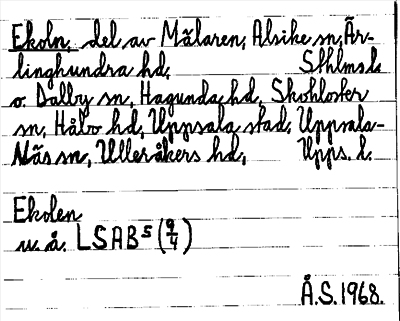 Ekoln, del av Mälaren, Alsike sn, Är-
linghundra hd, Sthlms l.
o. Dalby sn, Hagunda hd, Skokloster
sn, Håbo hd, Uppsala stad, Uppsala-
Näs sn, Ulleråkers hd, Upps. l.
Ekolen
u. å. LSAB 5 (9/4)
Å.S. 1968.